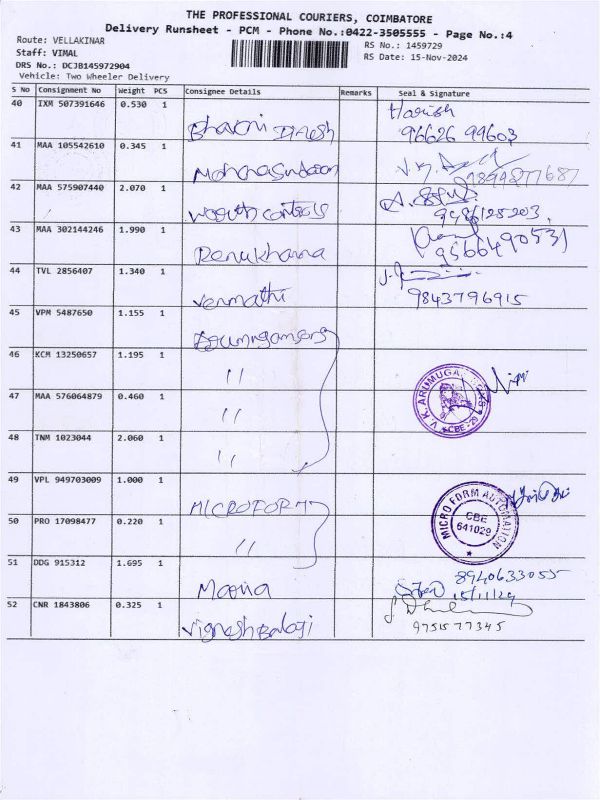 THE PROFESSIONAL COURIERS, COIMBATORE
Delivery Runsheet - PCM - Phone No.:0422-3505555 - Page No.:4
Route: VELLAKINAR
RS No.: 1459729
Staff: VIMAL
RS Date: 15-Nov-2024
DRS No.: DCJB145972904
Vehicle: Two Wheeler Delivery
S No Consignment No Weight PCS Consignee Details Remarks Seal & Signature
40 IXM 507391646 0.530 1 Harish
96626 99603
41 MAA 105542610 0.345 1
42 MAA 575907440 2.070 1
controls 9486125203
43 MAA 302144246 1.990 1
Renukhanna 9566490531
44 TVL 2856407 1.340 1
Venmathi 9843796915
45 VPM 5487650 1.155 1
46 KCM 13250657 1.195 1
"
47 MAA 576064879 0.460 1 V.K. ARUMUGA CBE-29
"
48 TNM 1023044 2.060 1
"
49 VPL 949703009 1.000 1
MICROFORM MICRO FORM AUTOMATION
50 PRO 17098477 0.220 1 CBE
641029
"
51 DDG 915312 1.695 1 8940633055
15/11/24
52 CNR 1843806 0.325 1
Vignesh Balaji 9751577345